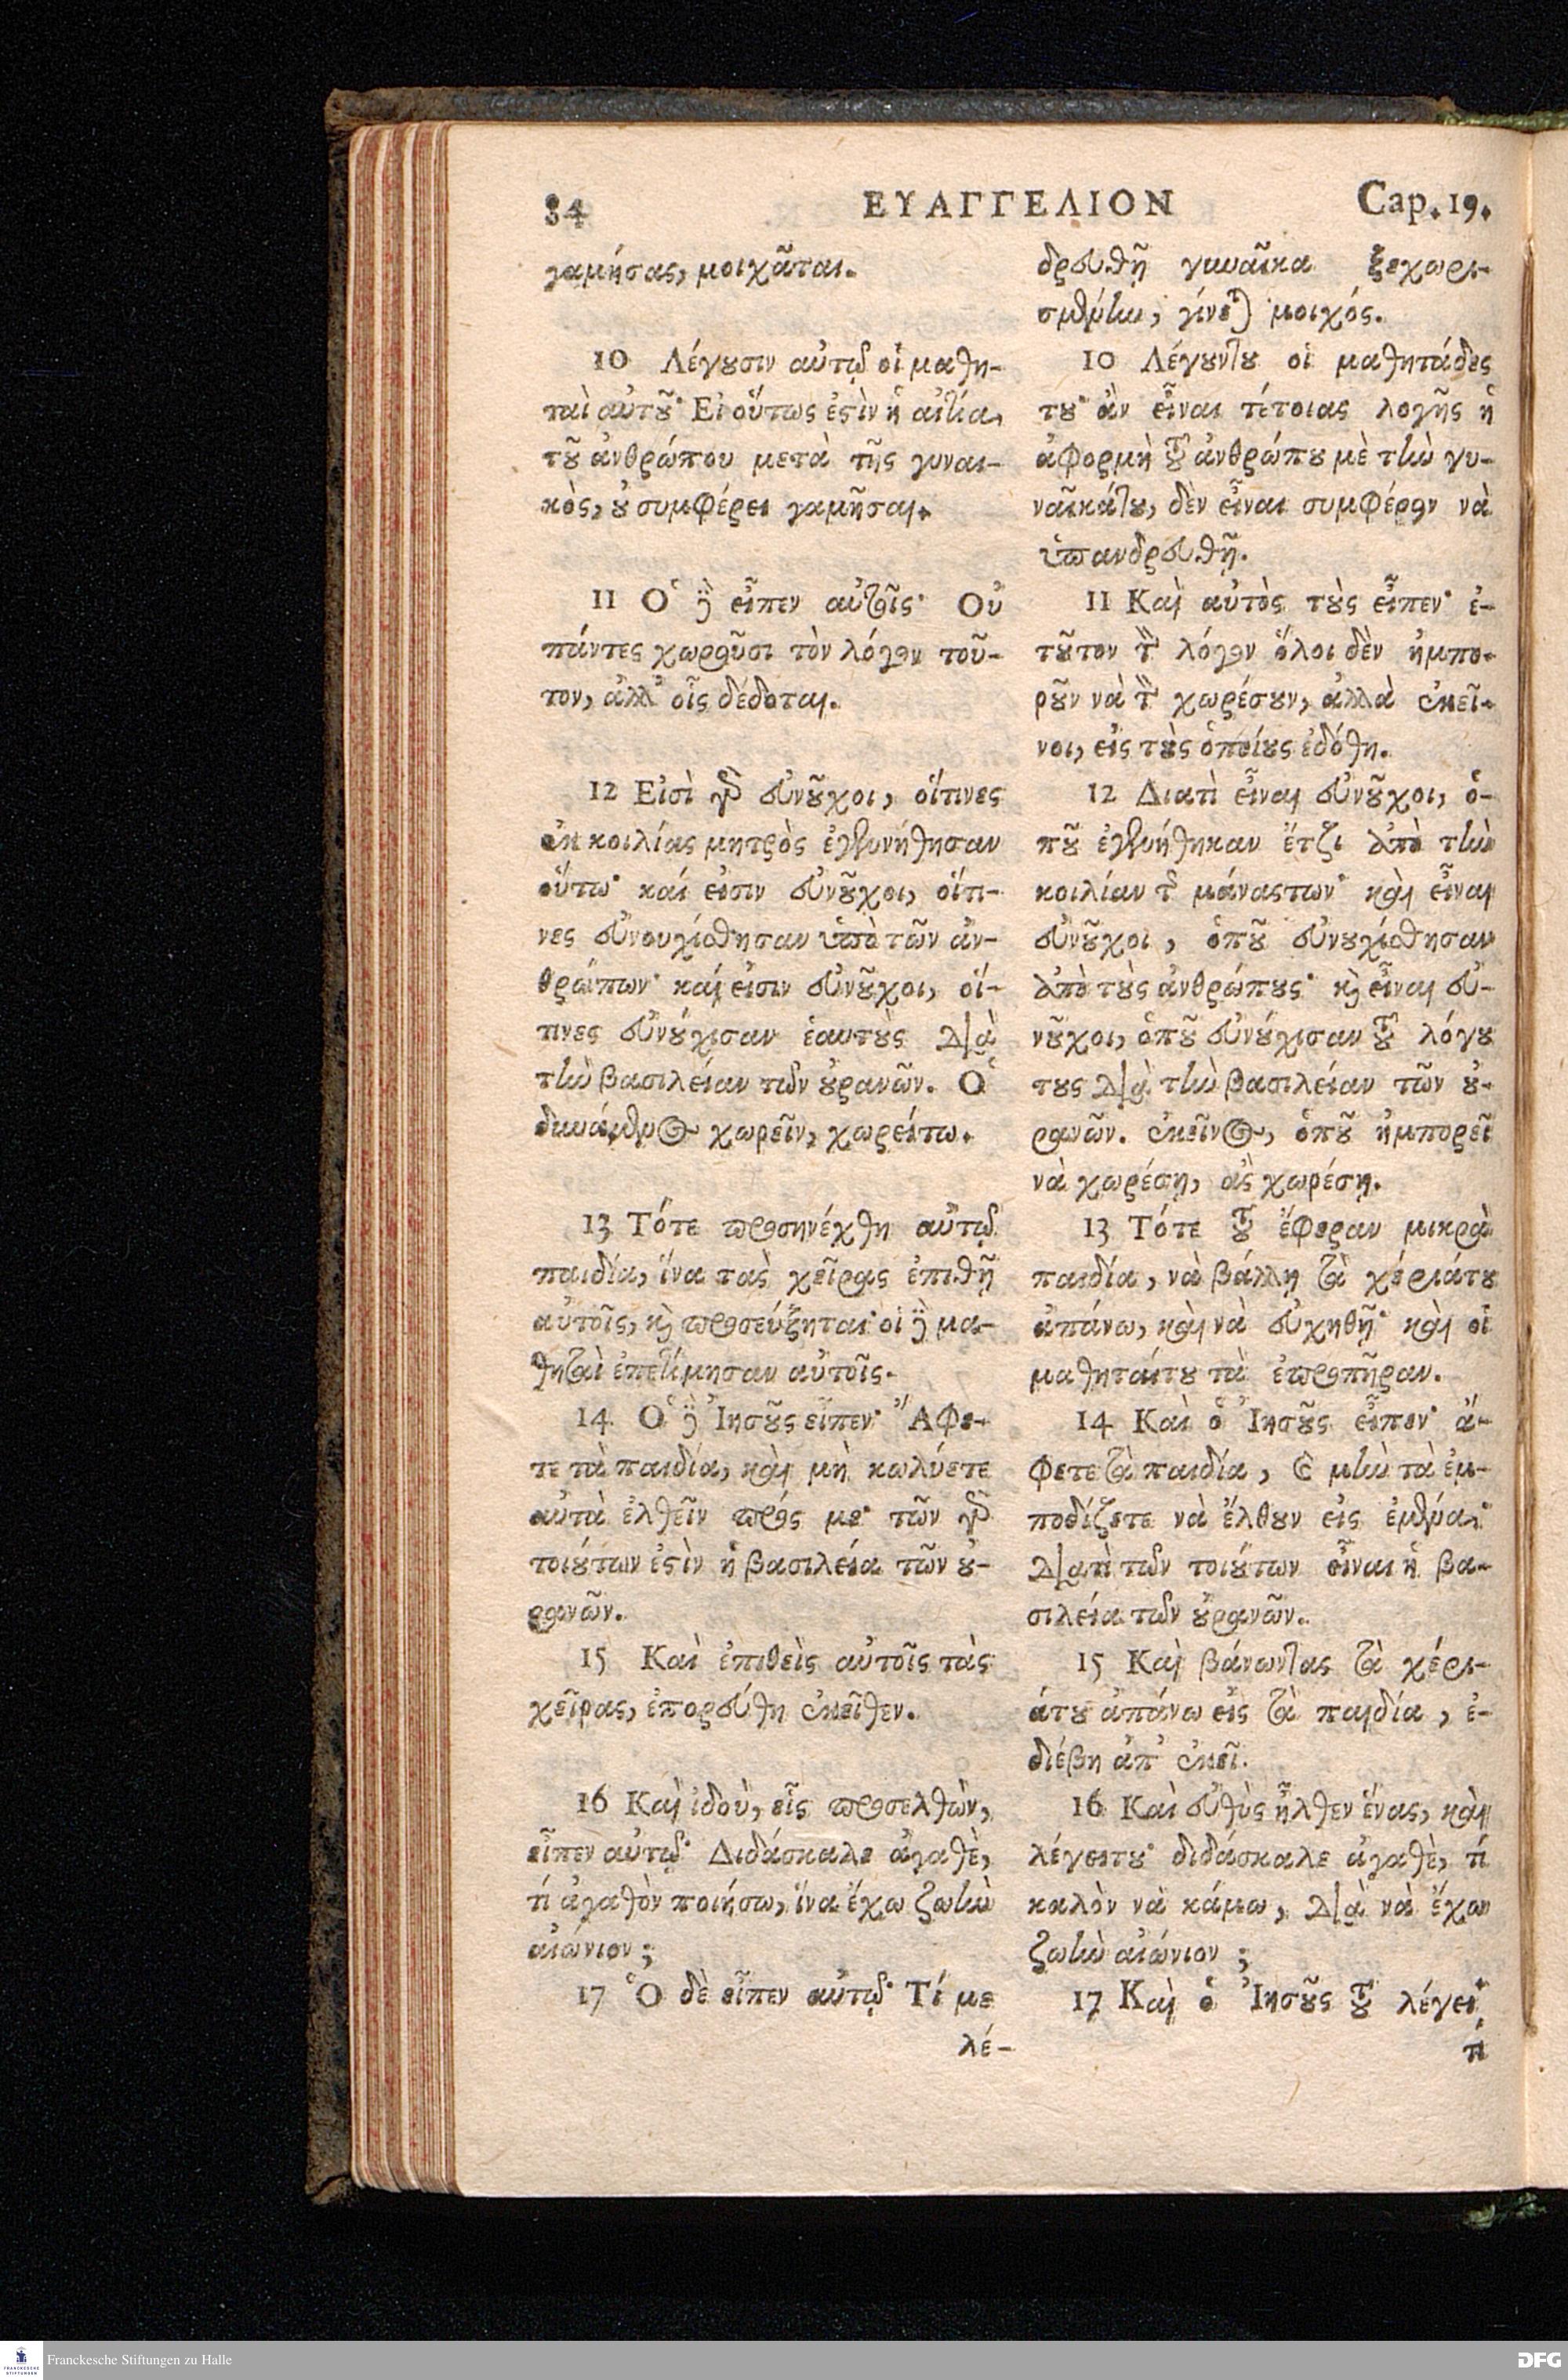 84 ΕΥΑΓΓΕΛΙΟΝ Cap. 19.
γαμήσας, μοιχᾶται.
10 Λέγȣσιν αὐτῷ οἱ μαθη-
ταὶ αὐτȣ͂· Εἰ οὕτως ἐϛὶν ἡ αἰτία,
τȣ͂ ἀνθρώπου μετὰ τῆς γυναι-
κὸς, ȣ̓ συμφέρει γαμῆσαι.
11 Ὁ δὲ εἶπεν αὐτοῖς· Οὐ
πάντες χωροῦσι τὸν λόγον τοῦ-
τον, ἀλλ' οἷς δέδοται.
12 Εἰσὶ γὰρ εὐνȣ͂χοι, οἵτινες
ἐκ κοιλίας μητρὸς ἐγεννήθησαν
οὕτω· καί εἰσιν εὐνȣ͂χοι, οἵτι-
νες εὐνουχίσθησαν ὑπὸ τῶν ἀν-
θρώπων· καί εἰσιν εὐνȣ͂χοι, οἵ-
τινες εὐνȣ́χισαν ἑαυτȣ̀ς διὰ
τὴν βασιλείαν τῶν ȣ̓ρανῶν. Ὁ
δυνάμενος χωρεῖν, χωρείτω.
13 Τότε προσηνέχθη αὐτῷ
παιδία, ἵνα τὰς χεῖρας ἐπιθῇ
αὐτοῖς, καὶ προσεύξηται· οἱ δὲ μα-
θηταὶ ἐπετίμησαν αὐτοῖς.
14 Ὁ δὲ Ἰησȣ͂ς εἶπεν· Ἄφε-
τε τὰ παιδία, καὶ μὴ κωλύετε
αὐτὰ ἐλθεῖν πρός με· τῶν γὰρ
τοιȣ́των ἐϛὶν ἡ βασιλεία τῶν ȣ̓-
ρανῶν.
15 Καὶ ἐπιθεὶς αὐτοῖς τὰς
χεῖρας, ἐπορεύθη ἐκεῖθεν.
16 Καὶ ἰδοὺ, εἷς προσελθὼν,
εἶπεν αὐτῷ· Διδάσκαλε ἀγαθὲ,
τί ἀγαθὸν ποιήσω, ἵνα ἔχω ζωὴν
αἰώνιον;
17 Ὁ δὲ εἶπεν αὐτῷ· Τί με
λέ-
δρευθῇ γυναῖκα ξεχωρι-
σμένην, γίνεται μοιχός.
10 Λέγȣντȣ οἱ μαθητάδες
τȣ· ἂν εἶναι τέτοιας λογῆς ἡ
ἀφορμὴ τȣ͂ ἀνθρώπȣ μὲ τὴν γυ-
ναῖκάτȣ, δὲν εἶναι συμφέρον νὰ
ὑπανδρευθῇ.
11 Καὶ αὐτὸς τȣ̀ς εἶπεν· ἐ-
τȣ͂τον τὸν λόγον ὅλοι δὲν ἠμπο-
ρȣ͂ν νὰ τὸν χωρέσȣν, ἀλλὰ ἐκεῖ-
νοι, εἰς τȣ̀ς ὁποίȣς ἐδόθη.
12 Διατὶ εἶναι εὐνȣ͂χοι, ὁ-
πȣ͂ ἐγεννήθηκαν ἔτζι ἀπὸ τὴν
κοιλίαν τῆς μάναςτων· καὶ εἶναι
εὐνȣ͂χοι, ὁπȣ͂ εὐνȣχίσθησαν
ἀπὸ τȣ̀ς ἀνθρώπȣς· καὶ εἶναι εὐ-
νȣ͂χοι, ὁπȣ͂ εὐνȣ́χισαν τȣ͂ λόγȣ
τȣς διὰ τὴν βασιλείαν τῶν ȣ̓-
ρανῶν. ἐκεῖνος, ὁπȣ͂ ἠμπορεῖ
νὰ χωρέσῃ, ἂς χωρέσῃ.
13 Τότε τȣ͂ ἔφεραν μικρὰ
παιδία, νὰ βάλλῃ τὰ χέριάτȣ
ἀπάνω, καὶ νὰ εὐχηθῇ· καὶ οἱ
μαθηταίτȣ τὰ ἐπροπῆραν.
14 Καὶ ὁ Ἰησȣ͂ς εἶπεν· ἄ-
φετε τὰ παιδία, καὶ μὴν τὰ ἐμ-
ποδίζετε νὰ ἔλθȣν εἰς ἐμένα·
διατὶ τῶν τοιȣ́των εἶναι ἡ βα-
σιλεία τῶν ȣ̓ρανῶν.
15 Καὶ βάνωντας τὰ χέρι-
άτȣ ἀπάνω εἰς τὰ παιδία, ἐ-
διέβη ἀπ' ἐκεῖ.
16 Καὶ εὐθὺς ἦλθεν ἕνας, καὶ
λέγειτȣ· διδάσκαλε ἀγαθὲ, τί
καλὸν νὰ κάμω, διὰ νὰ ἔχω
ζωὴν αἰώνιον;
17 Καὶ ὁ Ἰησȣ͂ς τȣ͂ λέγει·
τί
Franckesche Stiftungen zu Halle
FRANCKESCHE STIFTUNGEN
DFG